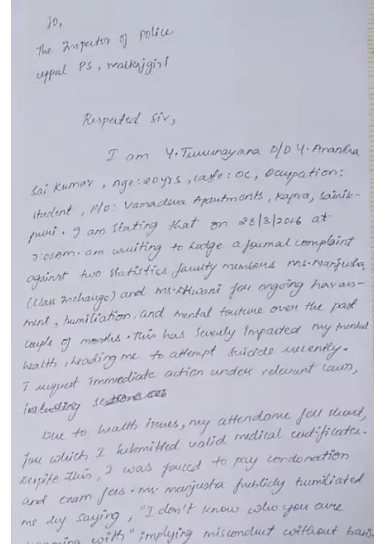 To,
The Inspector of Police
uppal PS, malkajgiri
Respected Sir,
I am Y. D/O Y. Anantha
Sai Kumar, Age: 20yrs, caste: OC, Occupation:
student, R/o: Vamadeva Apartments, Kapra, Sainik-
puri. I am stating that on 23/3/2026 at
am writing to lodge a formal complaint
against two statistics faculty members ms. manjusha
(class Incharge) and ms. for ongoing harass-
ment, humiliation, and mental torture over the past
couple of months. This has severly impacted my mental
health, leading me to attempt suicide recently.
I request immediate action under relevant laws,
including
Due to health issues, my attendance fell short,
for which I submitted valid medical certificates.
Despite this, I was forced to pay condonation
and exam fees. ms. manjusha publicly humiliated
me by saying, "I don't know who you are
with" implying misconduct without basis